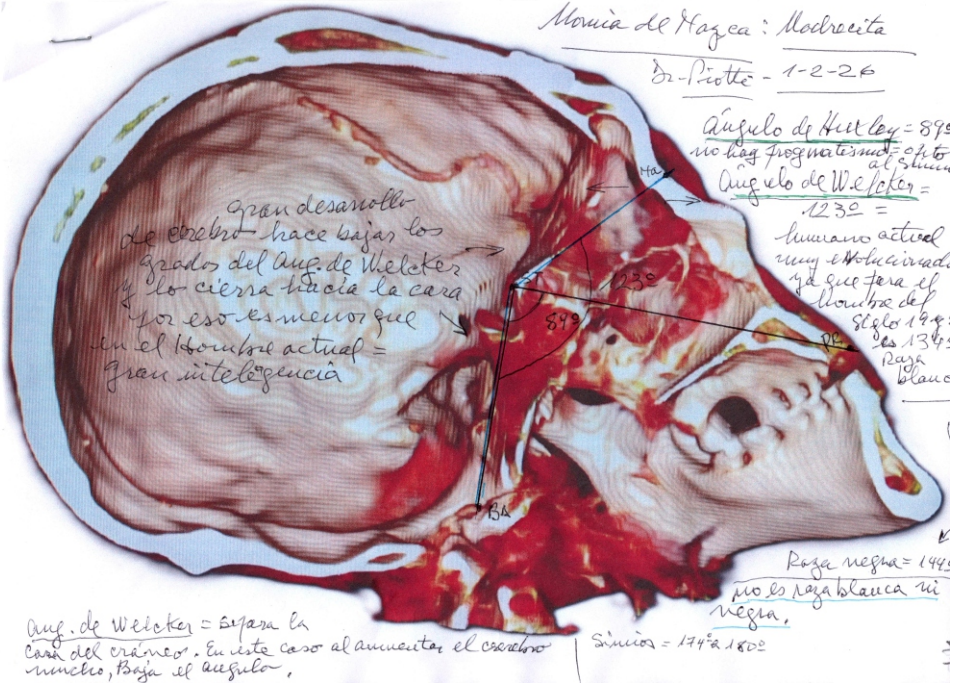 Momia de Nazca: Madrecita
Dr-Piotti - 1-2-26
ángulo de Huxley = 89º
no hay prognatismo = 
al
Ángulo de Welcker =
123º =
humano actual
muy evolucionado
ya que para el
hombre del
siglo 19 y
es 134º
Raza
blanc
Na
123º
89º
PR
BA
gran desarrollo
de cerebro hace bajar los
grados del Ang. de Welcker
y lo cierra hacia la cara
por eso es menor que
en el Hombre actual =
Gran inteligencia
Raza negra = 144º
no es raza blanca ni
negra.
Simios = 174º a 180º
Ang. de Welcker = separa la
cara del cráneo. En este caso al aumentar el cerebro
mucho, Baja el angulo.